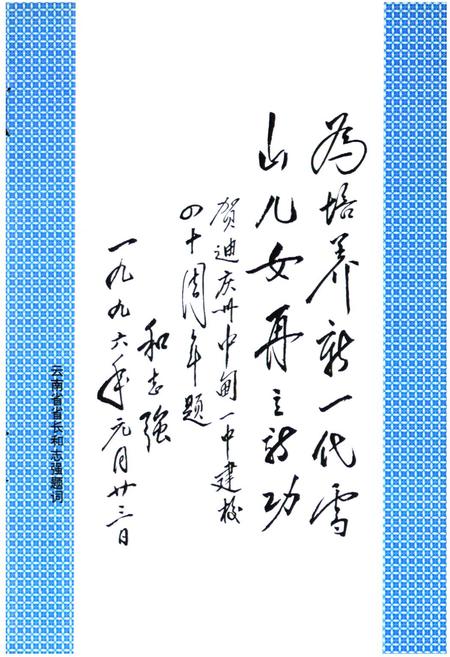 为培养新一代雪
山儿女再立新功
贺迪庆州中甸一中建校
四十周年题
和志强
一九九六年元月廿三日
云南省省长和志强题词